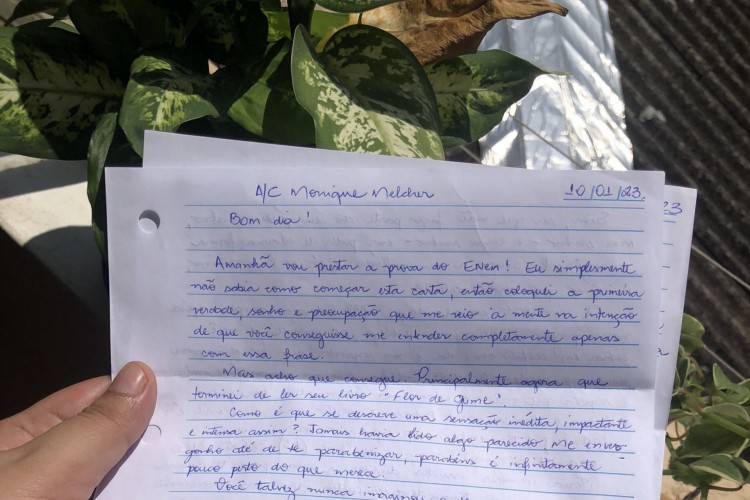 A/C Monique Melcher 10/01/23.
Bom dia!
Amanhã vou prestar a prova do Enem! Eu simplesmente
não sabia como começar esta carta, então coloquei a primeira
verdade, sonho e preocupação que me veio à mente na intenção
de que você conseguisse me entender completamente apenas
com essa frase.
Mas acho que consegue. Principalmente agora que
terminei de ler seu livro "Flor de Gume".
Como é que se descreve uma sensação inédita, impactante
e intensa assim? Jamais havia lido algo parecido. Me enver-
gonho até de te parabenizar, parabéns é infinitamente
pouco perto do que merece.
Você talvez nunca
23